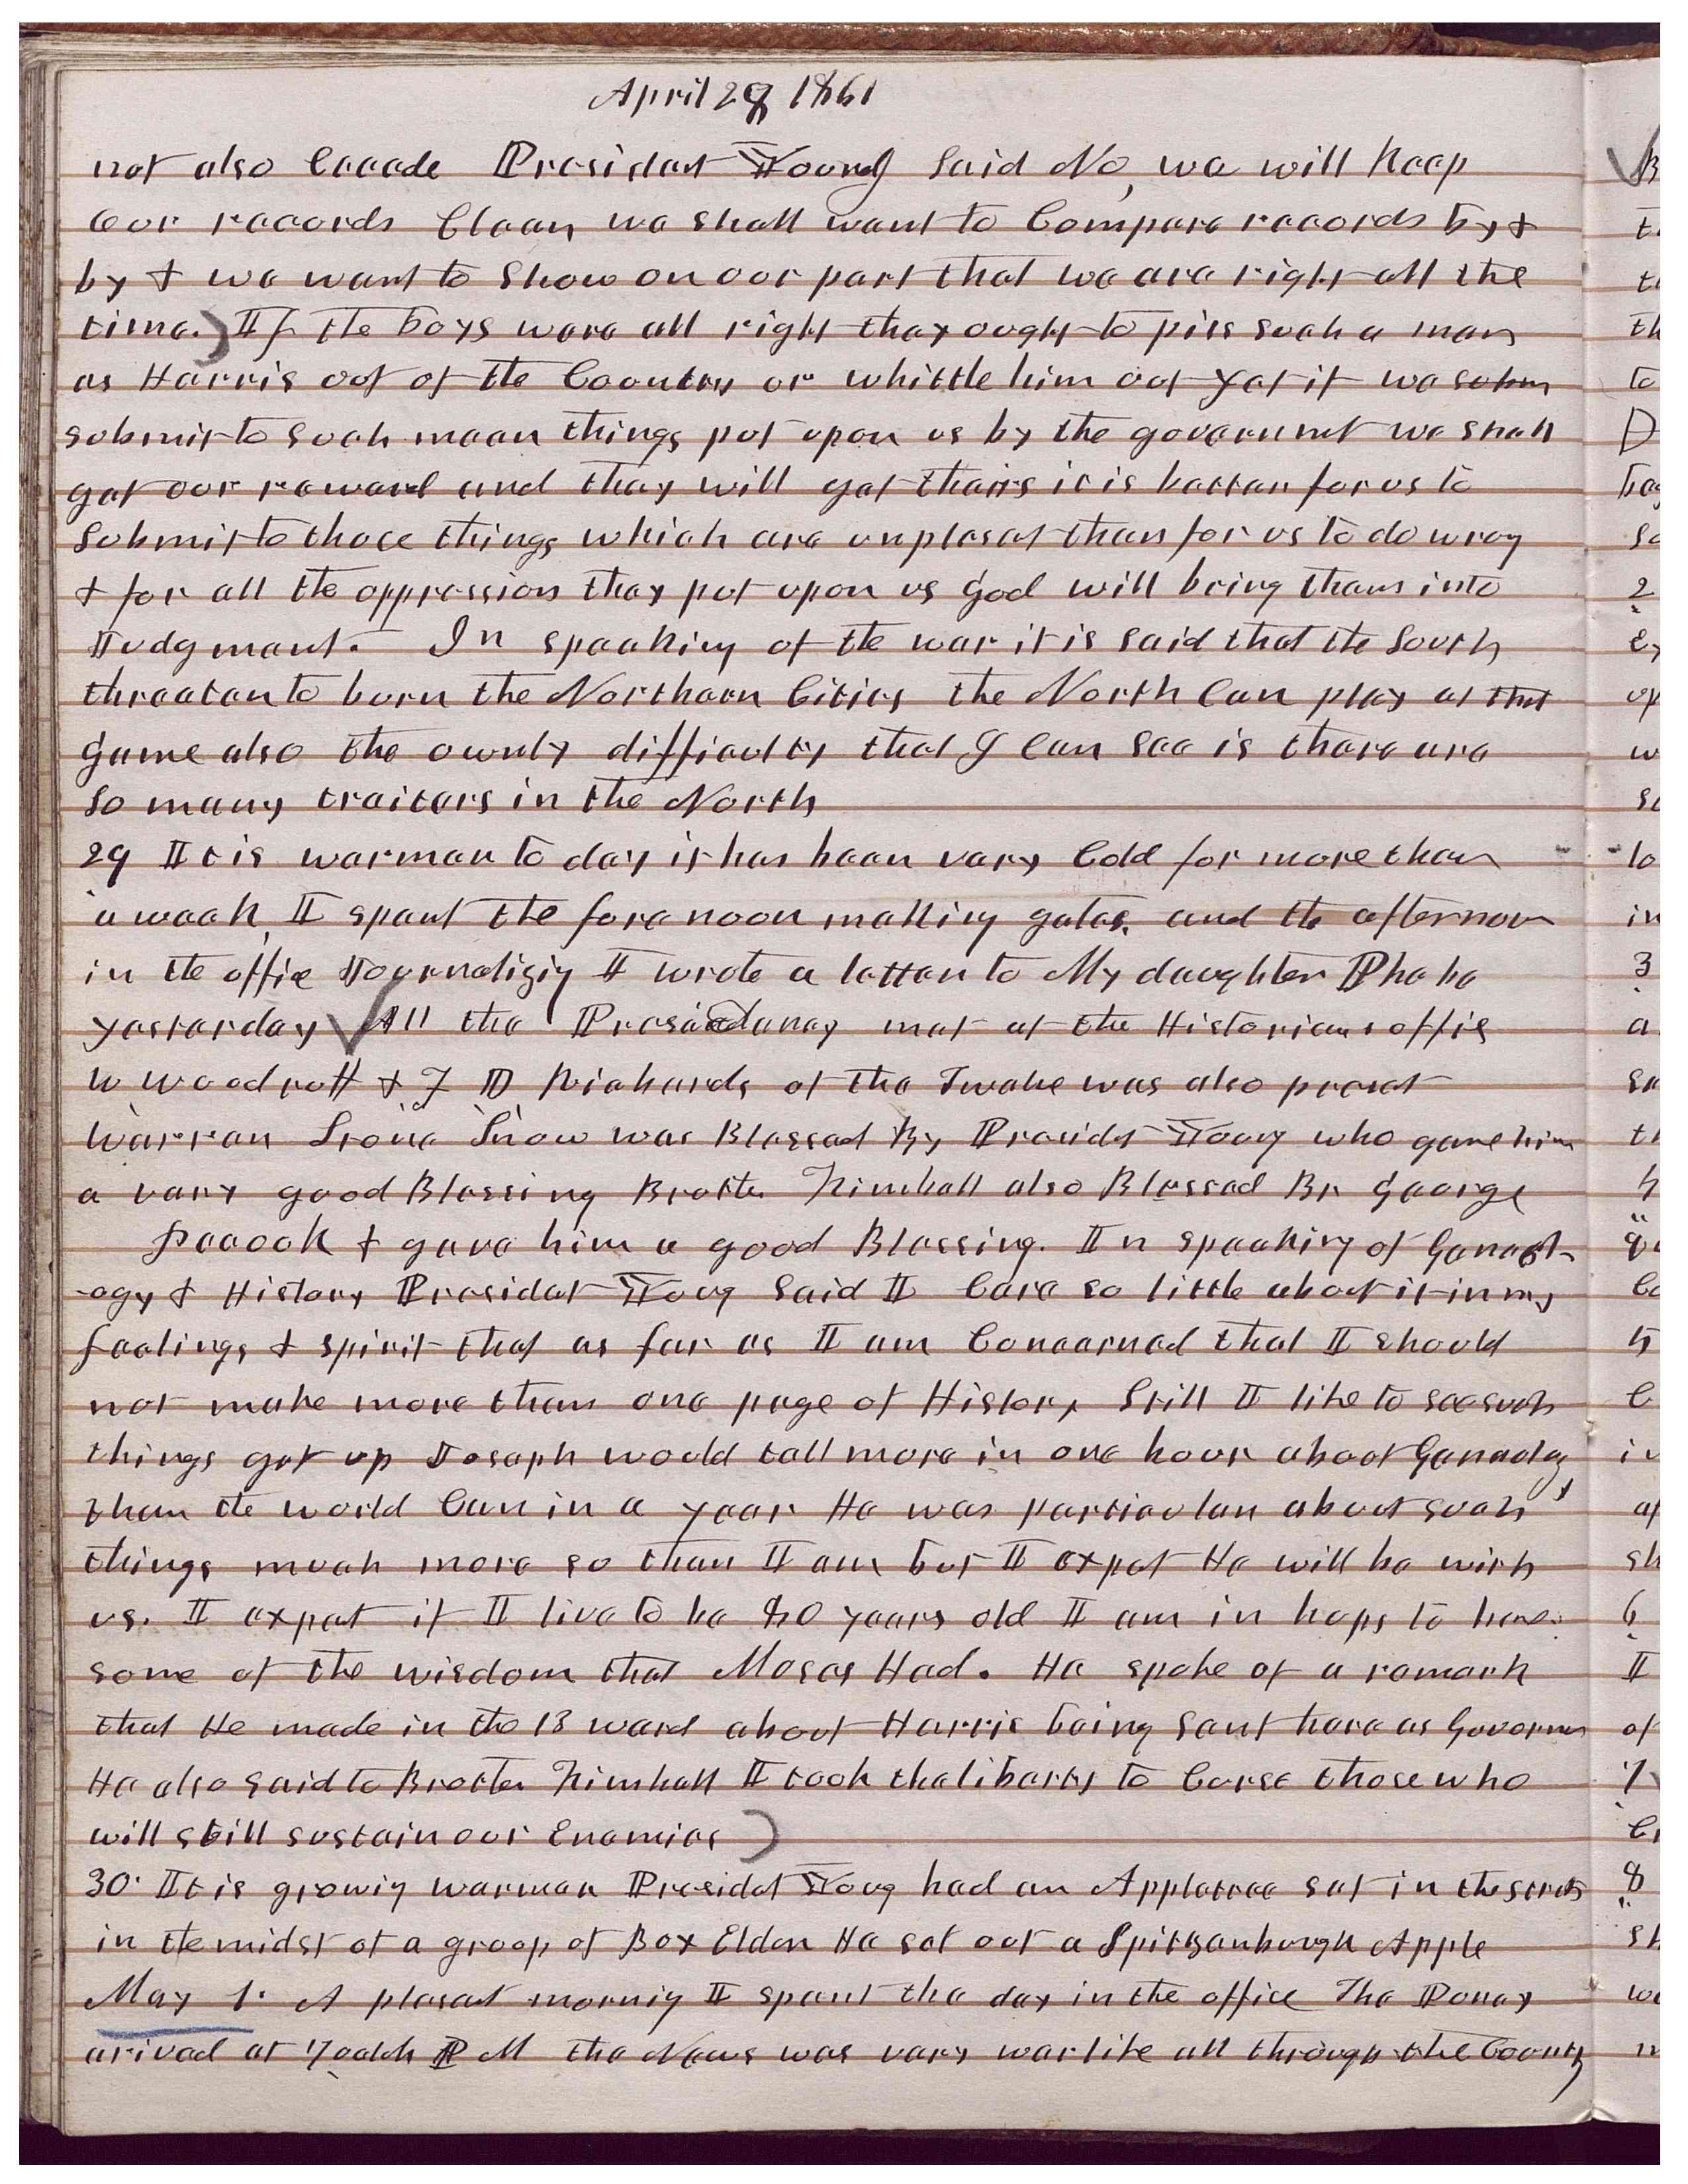 April 28 1861
not also Secede President Young said No, we will keep
our records Clean, we shall want to Compare records by &
by & we want to show on our part that we are right all the
time.) If the boys were all right they ought to piss such a man
as Harris out of the Country or whittle him out yet if we subm
submit to such mean things put upon us by the goverunmet we shall
get our reward and they will get theirs it is better for us to
submit to those things which are unplesat than for us to do wrog
& for all the oppression they put upon us God will bring them into
Judgment. In speaking of the war it is said that the South
threaten to burn the Northern Cities the North Can play at that
game also the ownly difficulty that I Can see is there are
so many traitors in the North
29 It is warmer to day it has been very Cold for more than
a week, I spent the fore noon making gates, and the afternoon
in the offie Journalizig I wrote a letter to My daughter Phebe
yesterday All the Presidency met at the Historians offie
W Woodruff & F D Richards of the Twelve was also presat
Warren Stone Snow was Blessed By Presidt Young who gave him
a very good Blessing Brother Kimball also Blessed Br George
Peacock & gave him a good Blessing. In speaking of Geneol-
-ogy & History Presidet Young said I Care so little about it in my
feelings & spirit that as far as I am Concerned that I should
not make more than one page of History still I like to see such
things get up Joseph would tell more in one hour about Genealogy
than the world Can in a year He was particular about such
things much more so than I am but I expet He will be with
us. I expet if I live to be 80 years old I am in hops to have
some of the wisdom that Moses Had. He spoke of a remark
that He made in the 13 ward about Harris being sent here as Governor
He also said to Brother Kimball I took the liberty to Curse those who
will still sustain our Enemies)
30. It is growig warmer Presidet Young had an Appletree set in the streets
in the midst of a groop of Box Elder He set out a Spitzenburgh Apple
May 1. A plesat mornig I spent the day in the office The Poney
arived at 7 oclok P M the News was very warlike all through the County